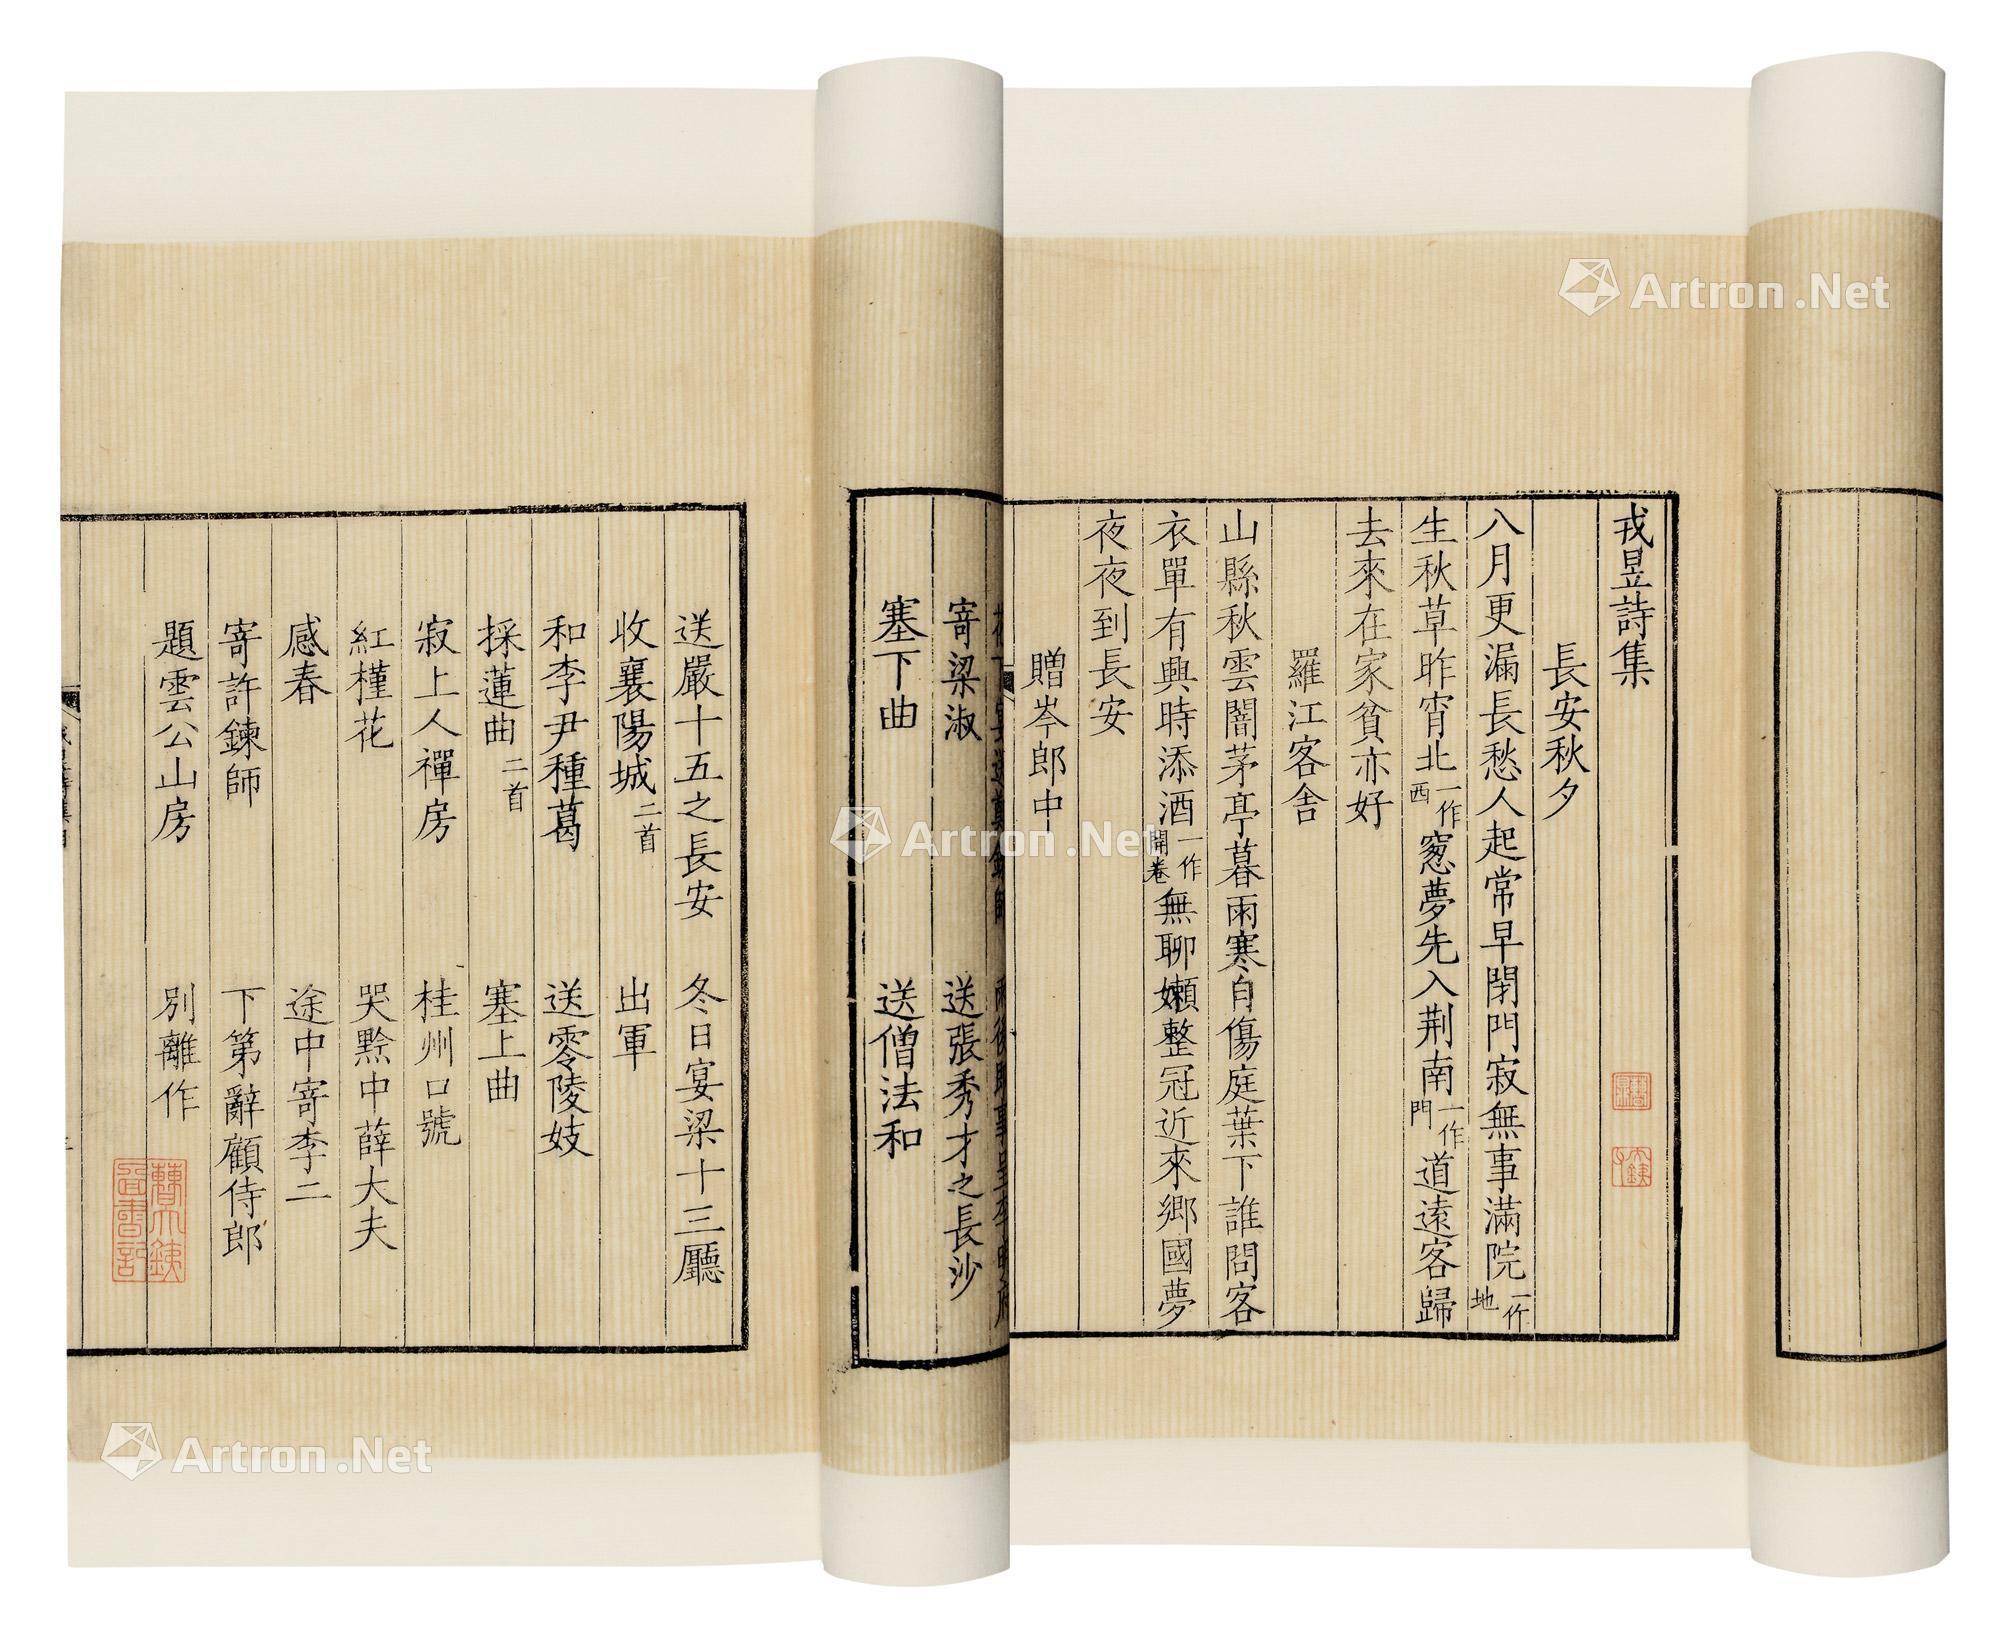 戎昱詩集
長安秋夕
八月更漏長愁人起常早閉門寂無事滿院一作地
生秋草昨宵北一作西窻夢先入荆南一作門道遠客歸
去來在家貧亦好
羅江客舎
山縣秋雲闇茅亭暮雨寒自傷庭葉下誰問客
衣單有興時添酒一作開卷無聊嬾整冠近來鄉國夢
夜夜到長安
贈岑郎中
寄梁淑 送張秀才之長沙
塞下曲 送僧法和
送嚴十五之長安 冬日宴梁十三廳
收襄陽城二首 出軍
和李尹種葛 送零陵妓
採蓮曲二首 塞上曲
寂上人禪房 桂州口號
紅槿花 哭黔中薛大夫
感春 途中寄李二
寄許鍊師 下第辭顧侍郎
題雲公山房 別離作
Artron.Net
Artron.Net
Artron.Net